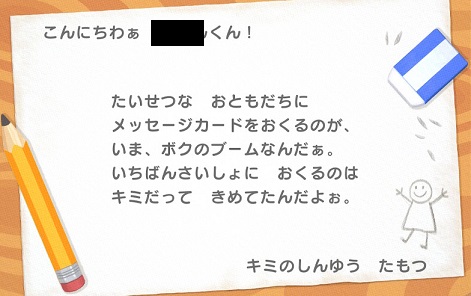 こんにちわぁ くん！
たいせつな　おともだちに
メッセージカードをおくるのが、
いま、ボクのブームなんだぁ。
いちばんさいしょに　おくるのは
キミだって　きめてたんだよぉ。
キミのしんゆう　たもつ